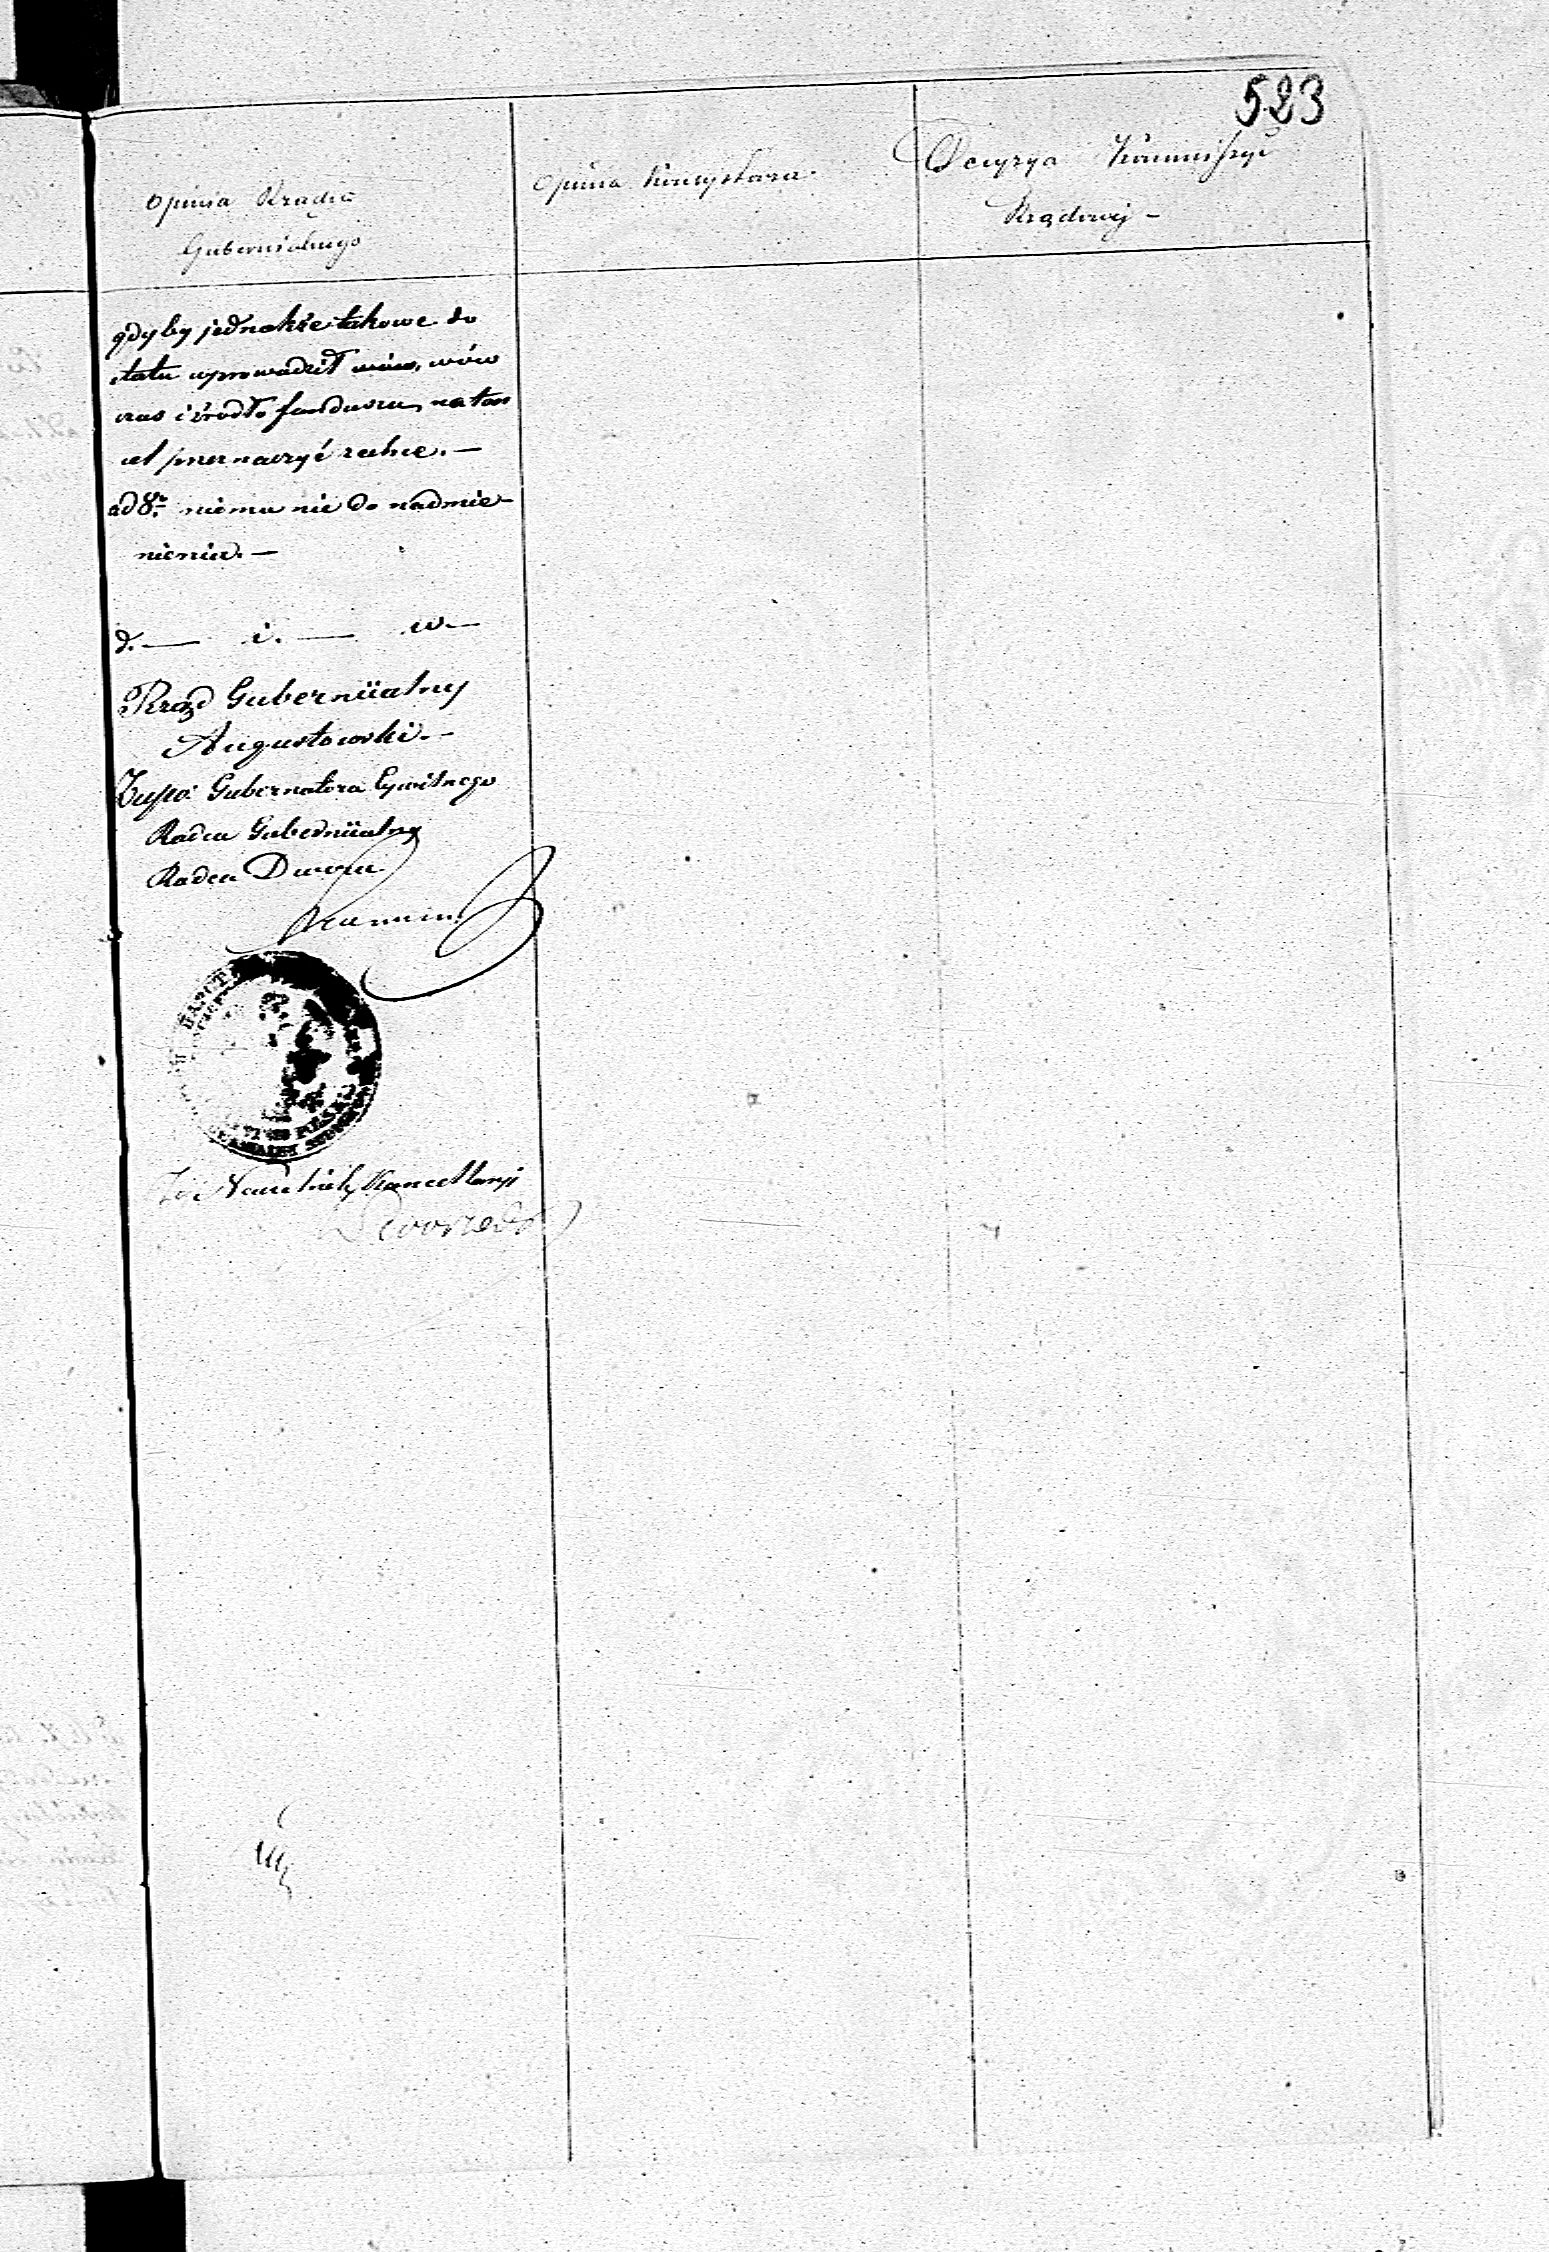 523
Opinia Rządu
Gubernialnego
Opinia
Decyzya Kommissyi
Rządowej -
gdyby jednakże takowe do
etatu wprowadzić wów
czas i źródło funduszu na ten
cel przeznaczyć zechce. —
ad 8. niema nic do nadmie-
nienia. —
d. — i. — w —
Rząd Guberniialny
Augustowski. -
Gubernatora Cywilnego
Radca Guberniialny
Radca Dworu
Naczelnik Kancellaryi